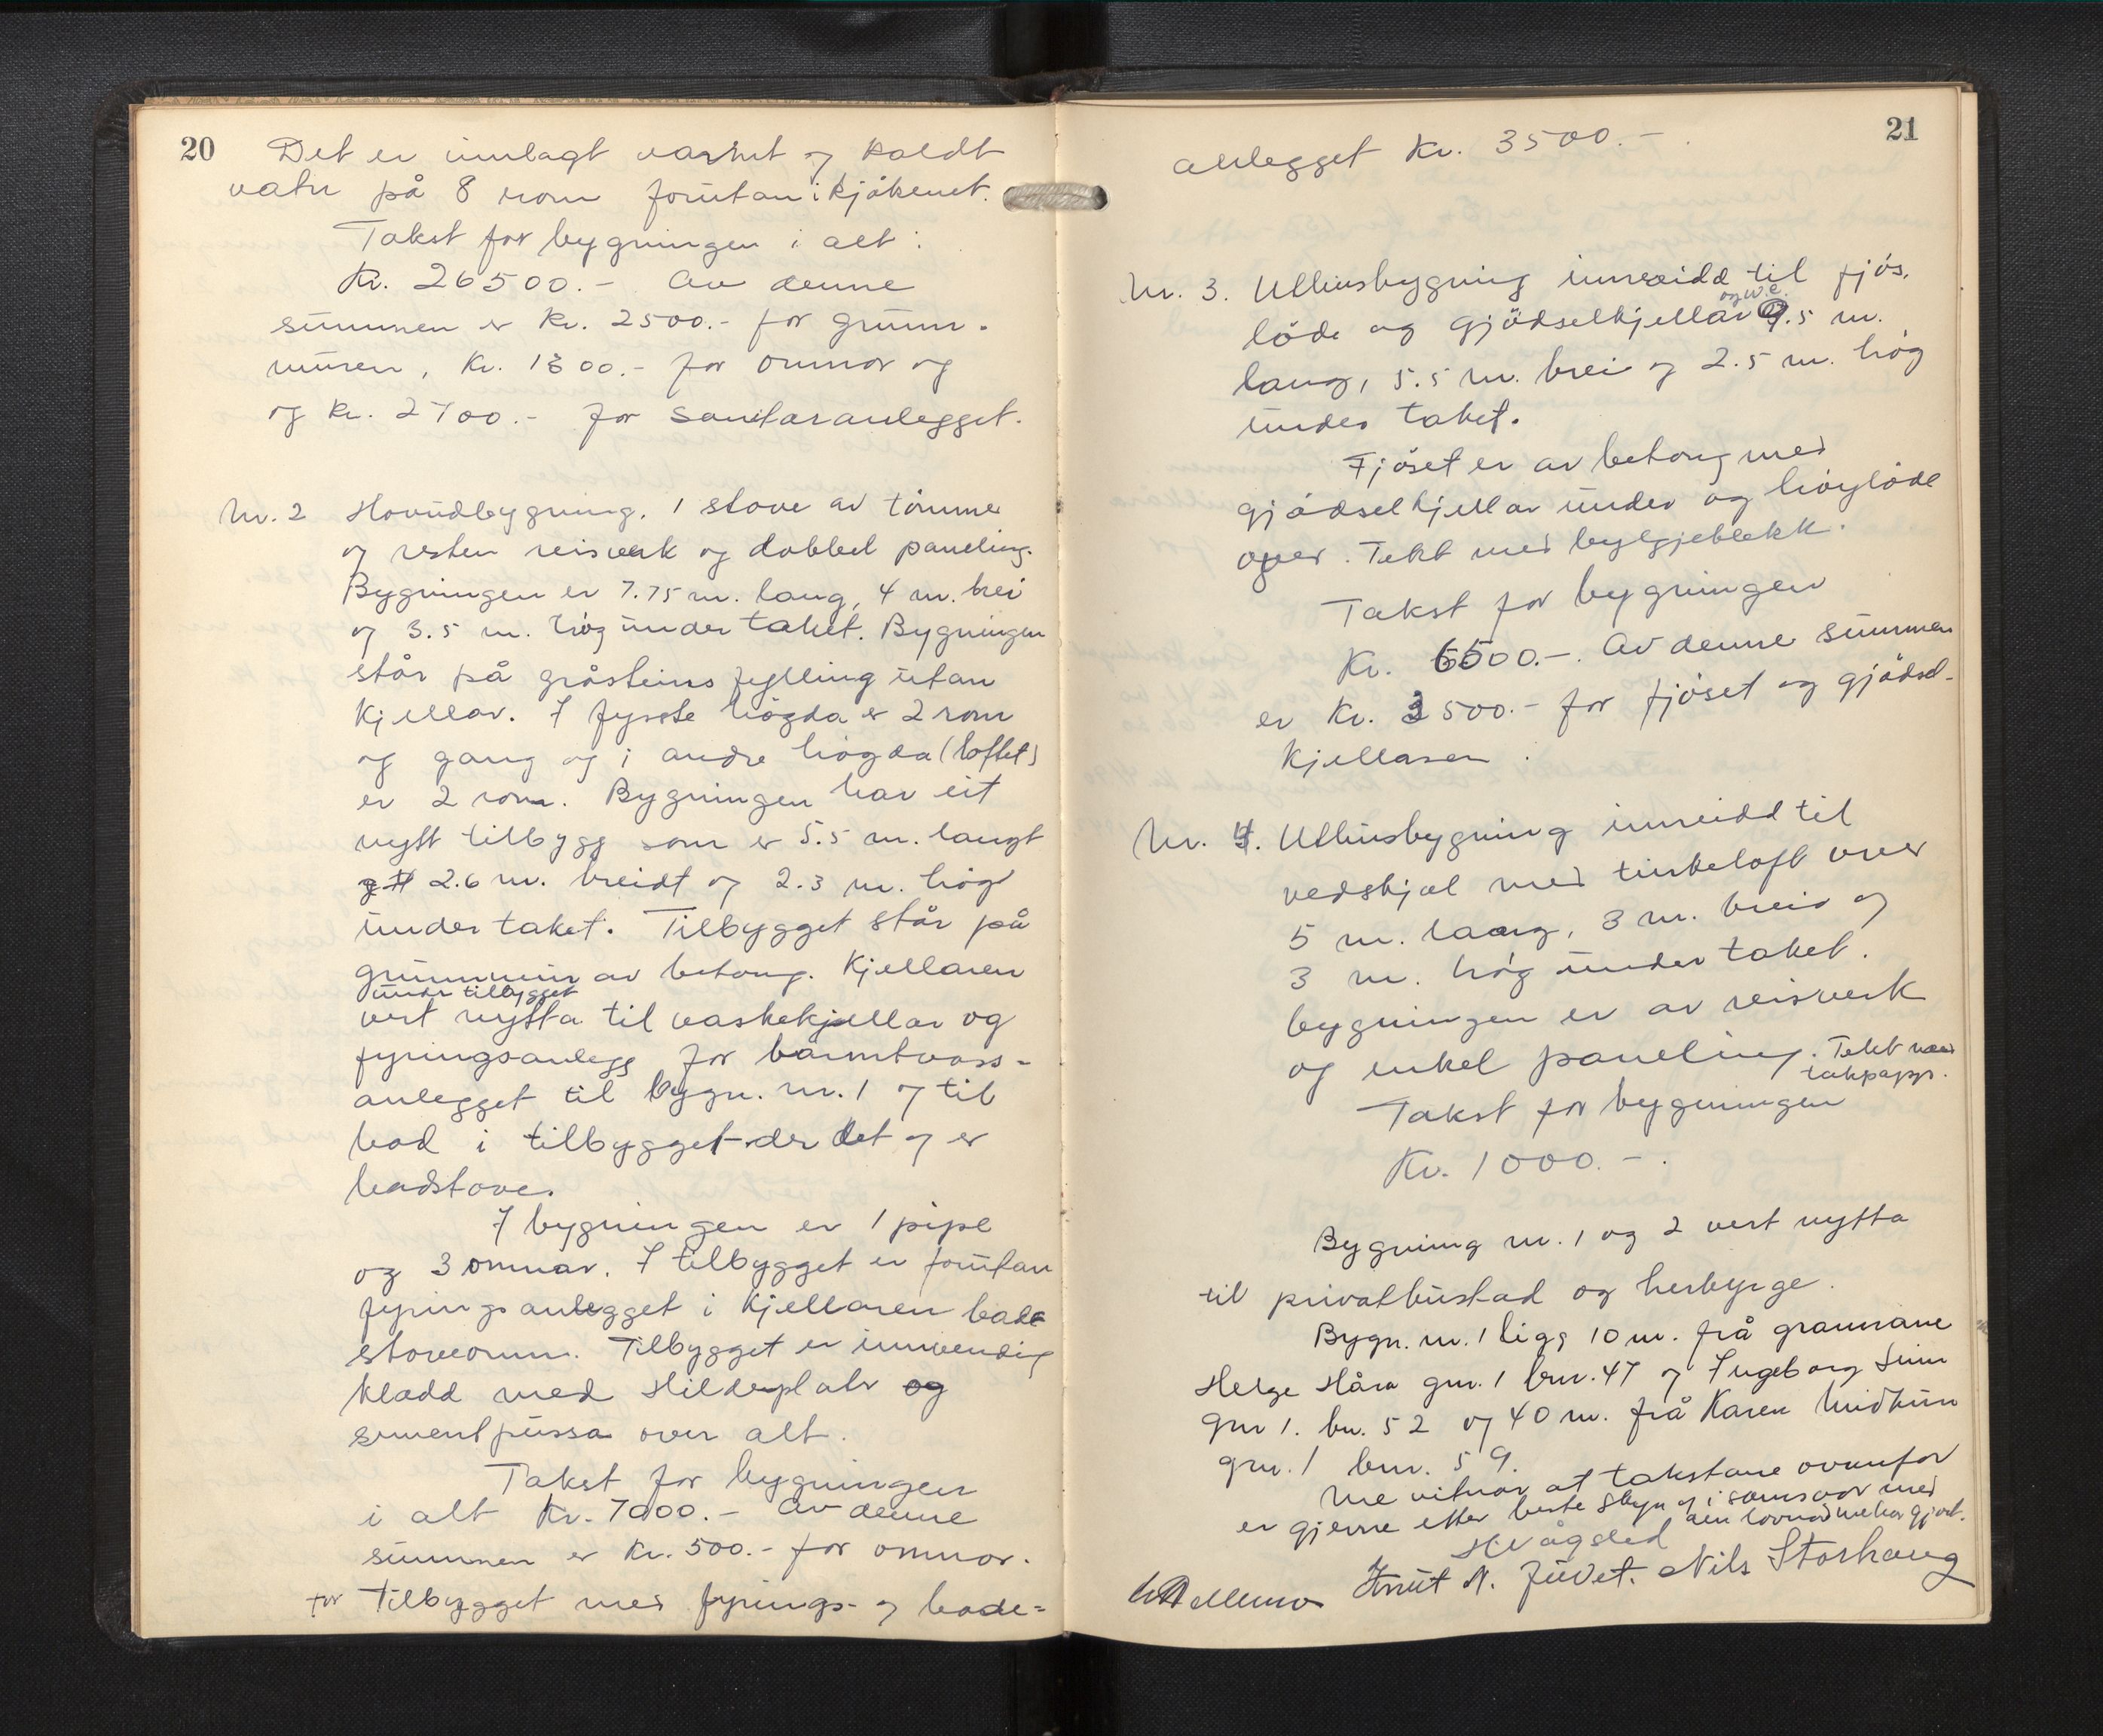 20
Det er innlagt varmt og kaldt
vatn på 8 rom forutan i kjökenet.
Takst for bygningen i alt:
Kr. 26500.- Av denne
summen er Kr. 2500.- for grunn-
muren, Kr. 1300.- for omnar og
og kr. 2700.- for sanitæranlegget.
Nr. 2 Hovudbygning, 1 stove av tömmer
og resten reisverk og dobbel paneling.
Bygningen er 7.75 m. lang, 4 m. brei
og 3.5 m. hög under taket. Bygningen
står på gråsteins fylling utan
Kjellar. I fyrste högda er 2 rom
og gang og i andre högda (loftet)
er 2 rom. Bygningen har eit
nytt tilbygg som er 5.5 m. langt
2.6 m. breidt og 2.3 m. hög
under taket. Tilbygget står på
grunnmur av betong. Kjellaren
under tilbygget
vert nytta til vaskekjellar og
fyringsanlegg for varmtvass-
anlegget til bygn. nr. 1 og til
bad i tilbygget der det og er
badstove.
I bygningen er 1 pipe
og 3 omnar. I tilbygget er forutan
fyringsanlegget i Kjellaren bade
stoveomn. Tilbygget er innvendig
kledd med Hildeplatr og
sementpussa over alt.
Takst for bygningen
i alt Kr. 7000.- Av denne
summen er Kr. 500.- for omnar.
for Tilbygget med fyrings- og bade-
21
anlegget Kr. 3500.-
Nr. 3. Uthusbygning innreidd til fjös,
og w.c.
löde og gjödselkjellar 9.5 m.
lang, 5.5 m. brei og 2.5 m. hög
under taket.
Fjöset er av betong med
gjödselkjellar under og höylöde
over. Tekt med bylgjeblekk.
Takst for bygningen
Kr. 6500.-. Av denne summen
er Kr. 3500.- for fjöset og gjödsel-
Kjellaren.
Nr. 4. Uthusbygning innreidd til
vedskjel med turkeloft over
5 m. lang, 3 m. brei og
3 m. hög under taket.
bygningen er av reisverk
og enkel paneling. Tekt med
takpapp.
Takst for bygningen
Kr. 1000.-.
Bygning nr. 1 og 2 vert nytta
til privatbustad og herbyrge.
Bygn. nr. 1 ligg 10 m. frå grannane
Helge Håra gnr. 1 bnr. 47 og Ingeborg
gnr 1. bn. 52 og 40 m. frå Karen Midtun
gnr. 1 bnr. 59.
Me vitnar at takstane ovanfor
er gjevne etter beste skyn og i samsvar med
den lovnad me har gjort.
Knut N. Juvet. Nils Storhaug